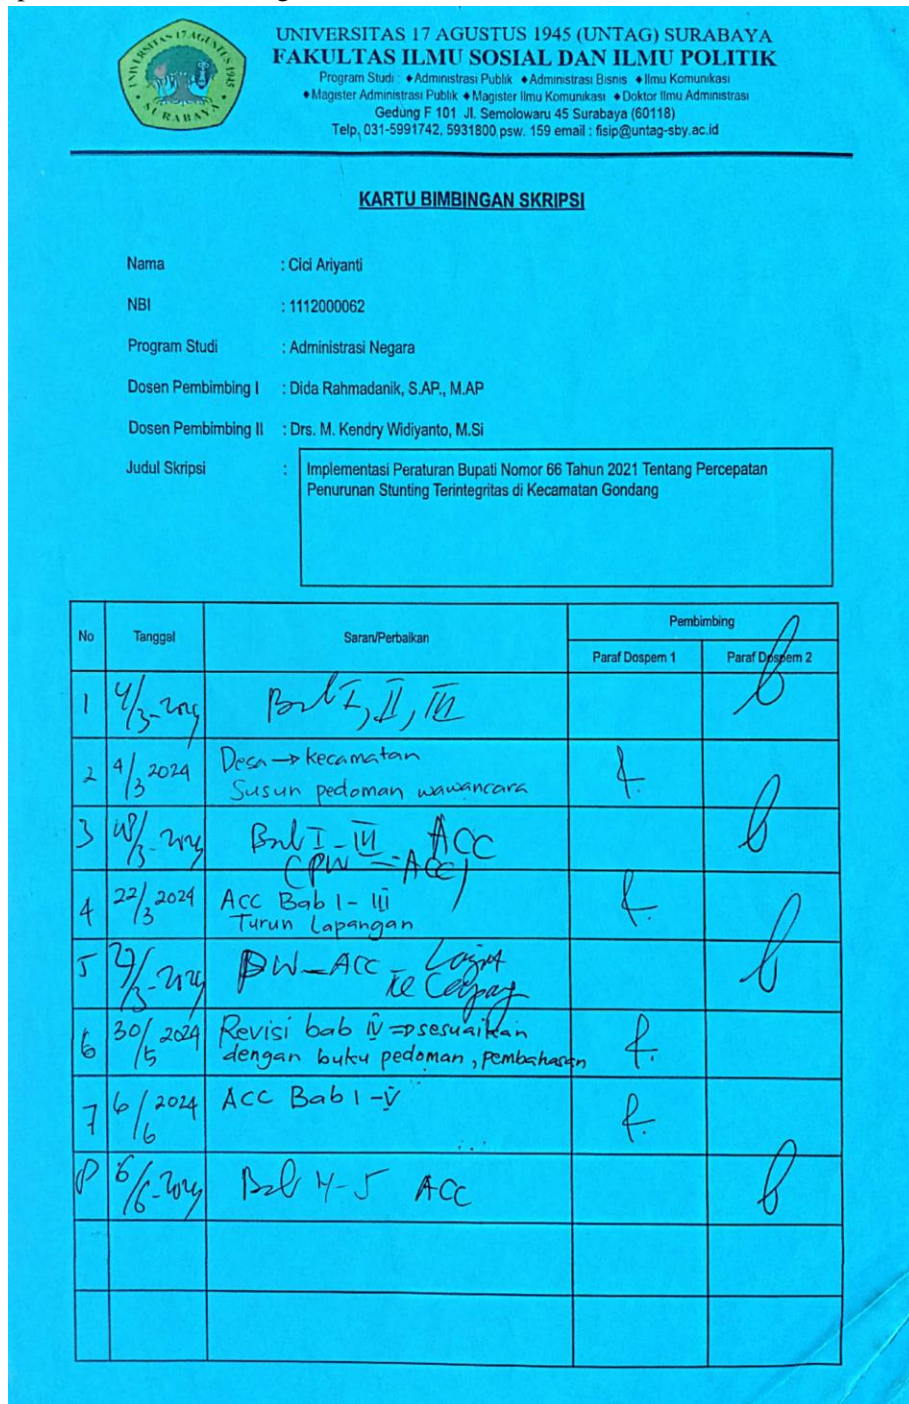 UNIVERSITAS 17 AGUSTUS 1945 (UNTAG) SURABAYA
FAKULTAS ILMU SOSIAL DAN ILMU POLITIK
Program Studi : ♦Administrasi Publik ♦Administrasi Bisnis ♦Ilmu Komunikasi
♦Magister Administrasi Publik ♦Magister Ilmu Komunikasi ♦Doktor Ilmu Administrasi
Gedung F 101 Jl. Semolowaru 45 Surabaya (60118)
Telp. 031-5991742, 5931800 psw. 159 email : fisip@untag-sby.ac.id
UNIVERSITAS 17 AGUSTUS 1945
SURABAYA
KARTU BIMBINGAN SKRIPSI
Nama : Cici Ariyanti
NBI : 1112000062
Program Studi : Administrasi Negara
Dosen Pembimbing I : Dida Rahmadanik, S.AP., M.AP
Dosen Pembimbing II : Drs. M. Kendry Widiyanto, M.Si
Judul Skripsi : Implementasi Peraturan Bupati Nomor 66 Tahun 2021 Tentang Percepatan
Penurunan Stunting Terintegritas di Kecamatan Gondang
No Tanggal Saran/Perbaikan Pembimbing
Paraf Dospem 1 Paraf Dospem 2
1 4/3-2024 Bab I, II, III
2 4/3 2024 Desa → kecamatan
Susun pedoman wawancara
3 /3-2024 Bab I - III ACC
(PW - ACC)
4 22/3 2024 Acc Bab I - III
Turun Lapangan
5 27/3-2024 PW - ACC -
ke
6 30/5 2024 Revisi bab IV ⇒ sesuaikan
dengan buku pedoman, pembahasan
7 6/6 2024 ACC Bab I - V
8 6/6-2024 Bab 4-5 ACC